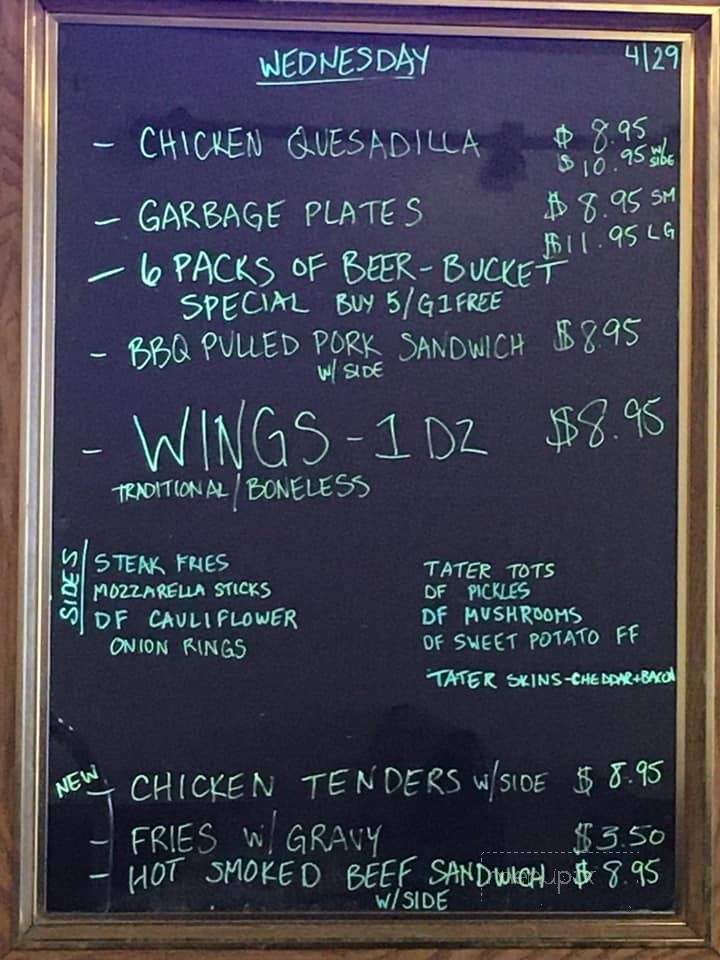 WEDNESDAY 4/29
- CHICKEN QUESADILLA $ 8.95
$ 10.95 W/ SIDE
- GARBAGE PLATES $ 8.95 SM
$11.95 LG
- 6 PACKS OF BEER-BUCKET
SPECIAL BUY 5/G1FREE
- BBQ PULLED PORK SANDWICH $8.95
W/ SIDE
- WINGS-1 DZ $8.95
TRADITIONAL/BONELESS
SIDES
STEAK FRIES
MOZZARELLA STICKS
DF CAULIFLOWER
ONION RINGS
TATER TOTS
DF PICKLES
DF MUSHROOMS
DF SWEET POTATO FF
TATER SKINS-CHEDDAR+BACON
NEW
- CHICKEN TENDERS W/SIDE $ 8.95
- FRIES W/ GRAVY $3.50
- HOT SMOKED BEEF SANDWICH $ 8.95
W/SIDE